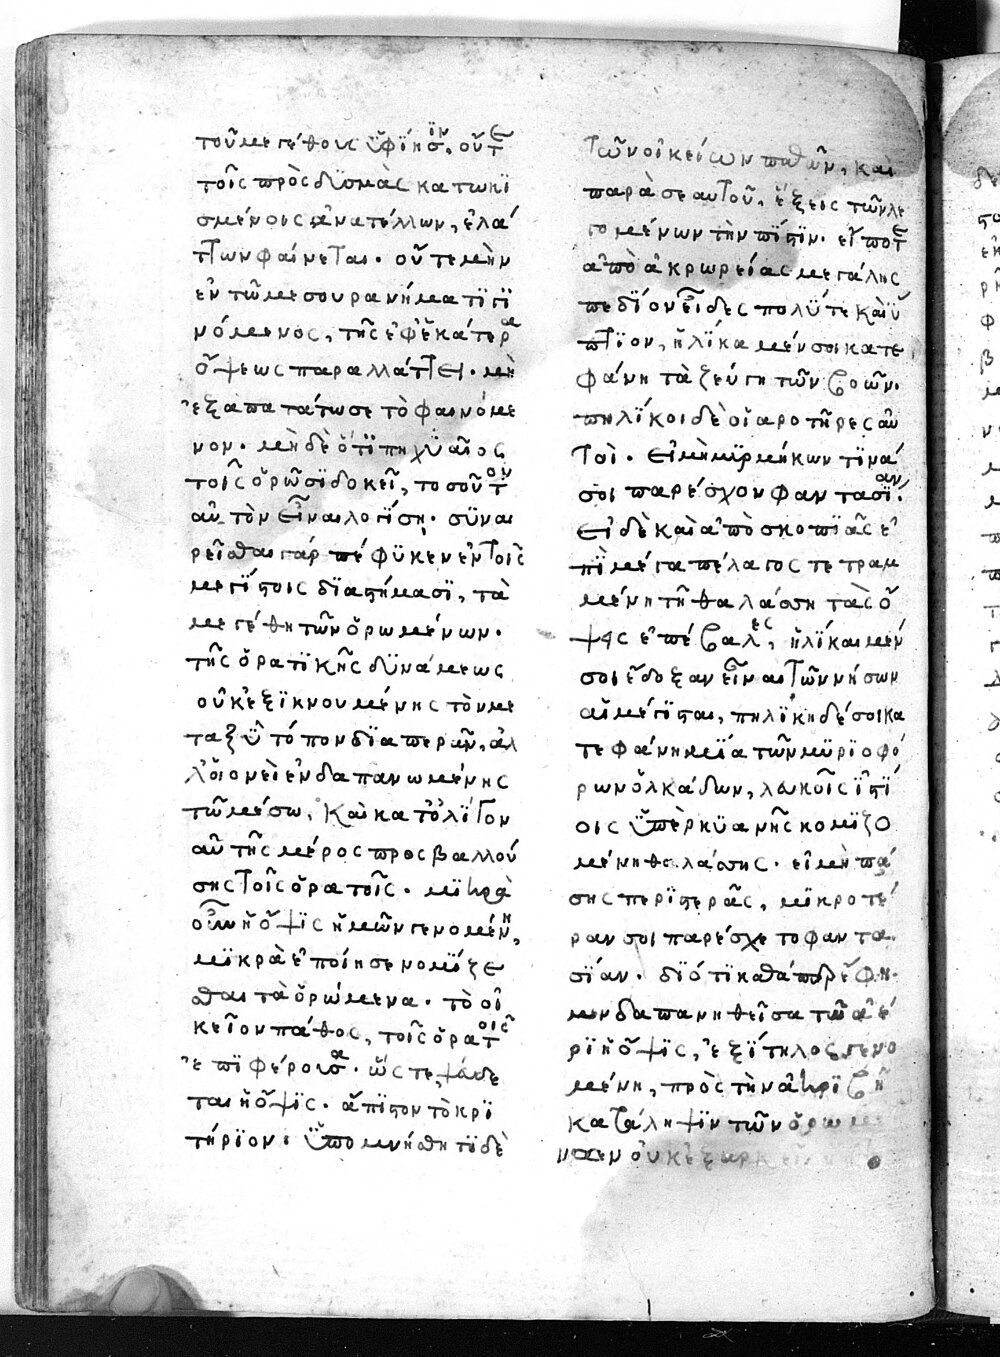 τοῦ μεγέθους ὑφίησιν, οὔτε
τοῖς πρὸς δυσμὰς κατωκι
σμένοις ἀνατέλλων, ἐλά
ττων φαίνεται. οὔτε μὴν
ἐν τῶ μεσουρανήματι γι
νόμενος, τῆς ἐφ' ἑκάτερα
ὄψεως παραλλάττει. μὴ
ἐξαπατάτω σε τὸ φαινόμε
νον. μὴ δὲ ὅτι πηχυαῖος
τοῖς ὁρῶσι δοκεῖ, τοσοῦτον
αὐτὸν εἶναι λογίση. συναι
ρεῖσθαι γὰρ πέφυκεν ἐν τοῖς
μεγίστοις διαστήμασι, τὰ
μεγέθη τῶν ὁρωμένων.
τῆς ὁρατικῆς δυνάμεως
οὐκ ἐξικνουμένης τὸν με
ταξὺ τόπον διαπερᾶν, ἀλ
λ' οἱονεὶ ἐνδαπανωμένης
τῶ μέσω, καὶ κατ' ὀλίγον
αὐτῆς μέρος προσβαλλού
σης τοῖς ὁρατοῖς. μικρὰ
οὖν ἡ ὄψις ἡμῶν γενομένη,
μικρὰ ἐποίησε νομίζε
σθαι τὰ ὁρώμενα. τὸ οἰ
κεῖον πάθος, τοῖς ὁρατοῖς
ἐπιφέρουσα. ὥστε ψεύδε
ται ἡ ὄψις. ἄπιστον τὸ κρι
τήριον. ὑπομνήσθητι δὲ
τῶν οἰκείων παθῶν, καὶ
παρὰ σεαυτοῦ, ἕξεις τῶν λε
γομένων τὴν πίστιν. εἴ ποτε
ἀπὸ ἀκρωρείας μεγάλης
πεδίον εἶδες πολύ τε καὶ ὕ
πτιον, ἡλίκα μέν σοι κατε
φάνη τὰ ζεύγη τῶν βοῶν.
πηλίκοι δὲ οἱ ἀροτῆρες αὐ
τοί. εἰ μὴ μυρμήκων τινά
σοι παρέσχον φαντασίαν.
εἰ δὲ καὶ ἀπὸ σκοπιᾶς ἐ
πὶ μέγα πέλαγος τετραμ
μένη τῆ θαλάσση τὰς ὄ
ψεις ἐπέβαλες, ἡλίκαι μέν
σοι ἔδοξαν εἶναι τῶν νήσων
αἱ μέγισται, πηλίκη δέ σοι κα
τεφάνη μία τῶν μυριοφό
ρων ὁλκάδων, λευκοῖς ἱστί
οις ὑπὲρ κυανῆς κομιζο
μένη θαλάσσης. εἰ μὴ πά
σης περιστερᾶς, μικροτέ
ραν σοι παρέσχε το φαντα
σίαν. διότι καθάπερ ἔφη
μεν δαπανηθεῖσα τῶ ἀέ
ρι ἡ ὄψις, ἐξίτηλος γενο
μένη, πρὸς τὴν ἀκριβῆ
κατάληψιν τῶν ὁρωμέ
νων οὐκ ἐξαρκεῖ